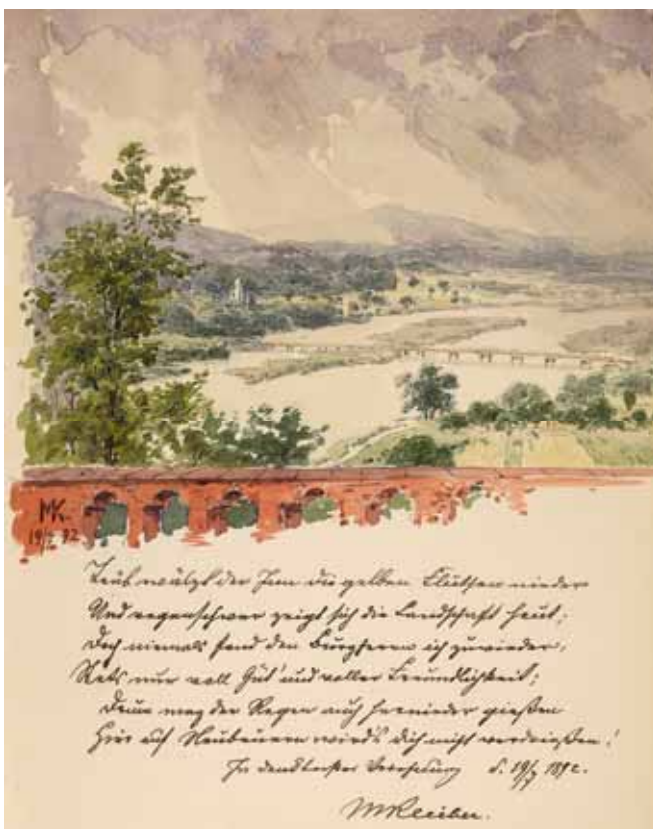 MK.
19/7 92
Trüb wälzt der Inn die gelben Fluthen nieder
Und regenschwer zeigt sich die Landschaft heut;
Doch niemals fand den Burgherrn ich zuwieder,
Stets nur voll Güt' und voller Freundlichkeit;
Drum mag der Regen auch hernieder gießen
Hier auf Neubeuern wird's dich nicht verdrießen!
In dankbarster Verehrung d. 19/7 1892.
MKleiber.